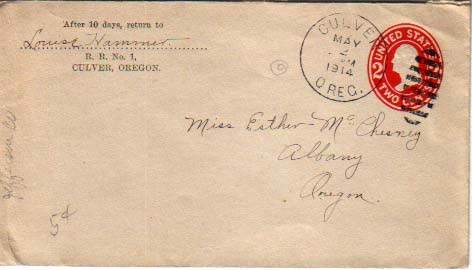 After 10 days, return to
Louise Hammer
R. R. No. 1,
CULVER, OREGON.
CULVER
MAY
2
PM
1914
OREG.
UNITED STATES
2
TWO CENTS
Miss Esther McChesney
Albany
Oregon.
5¢